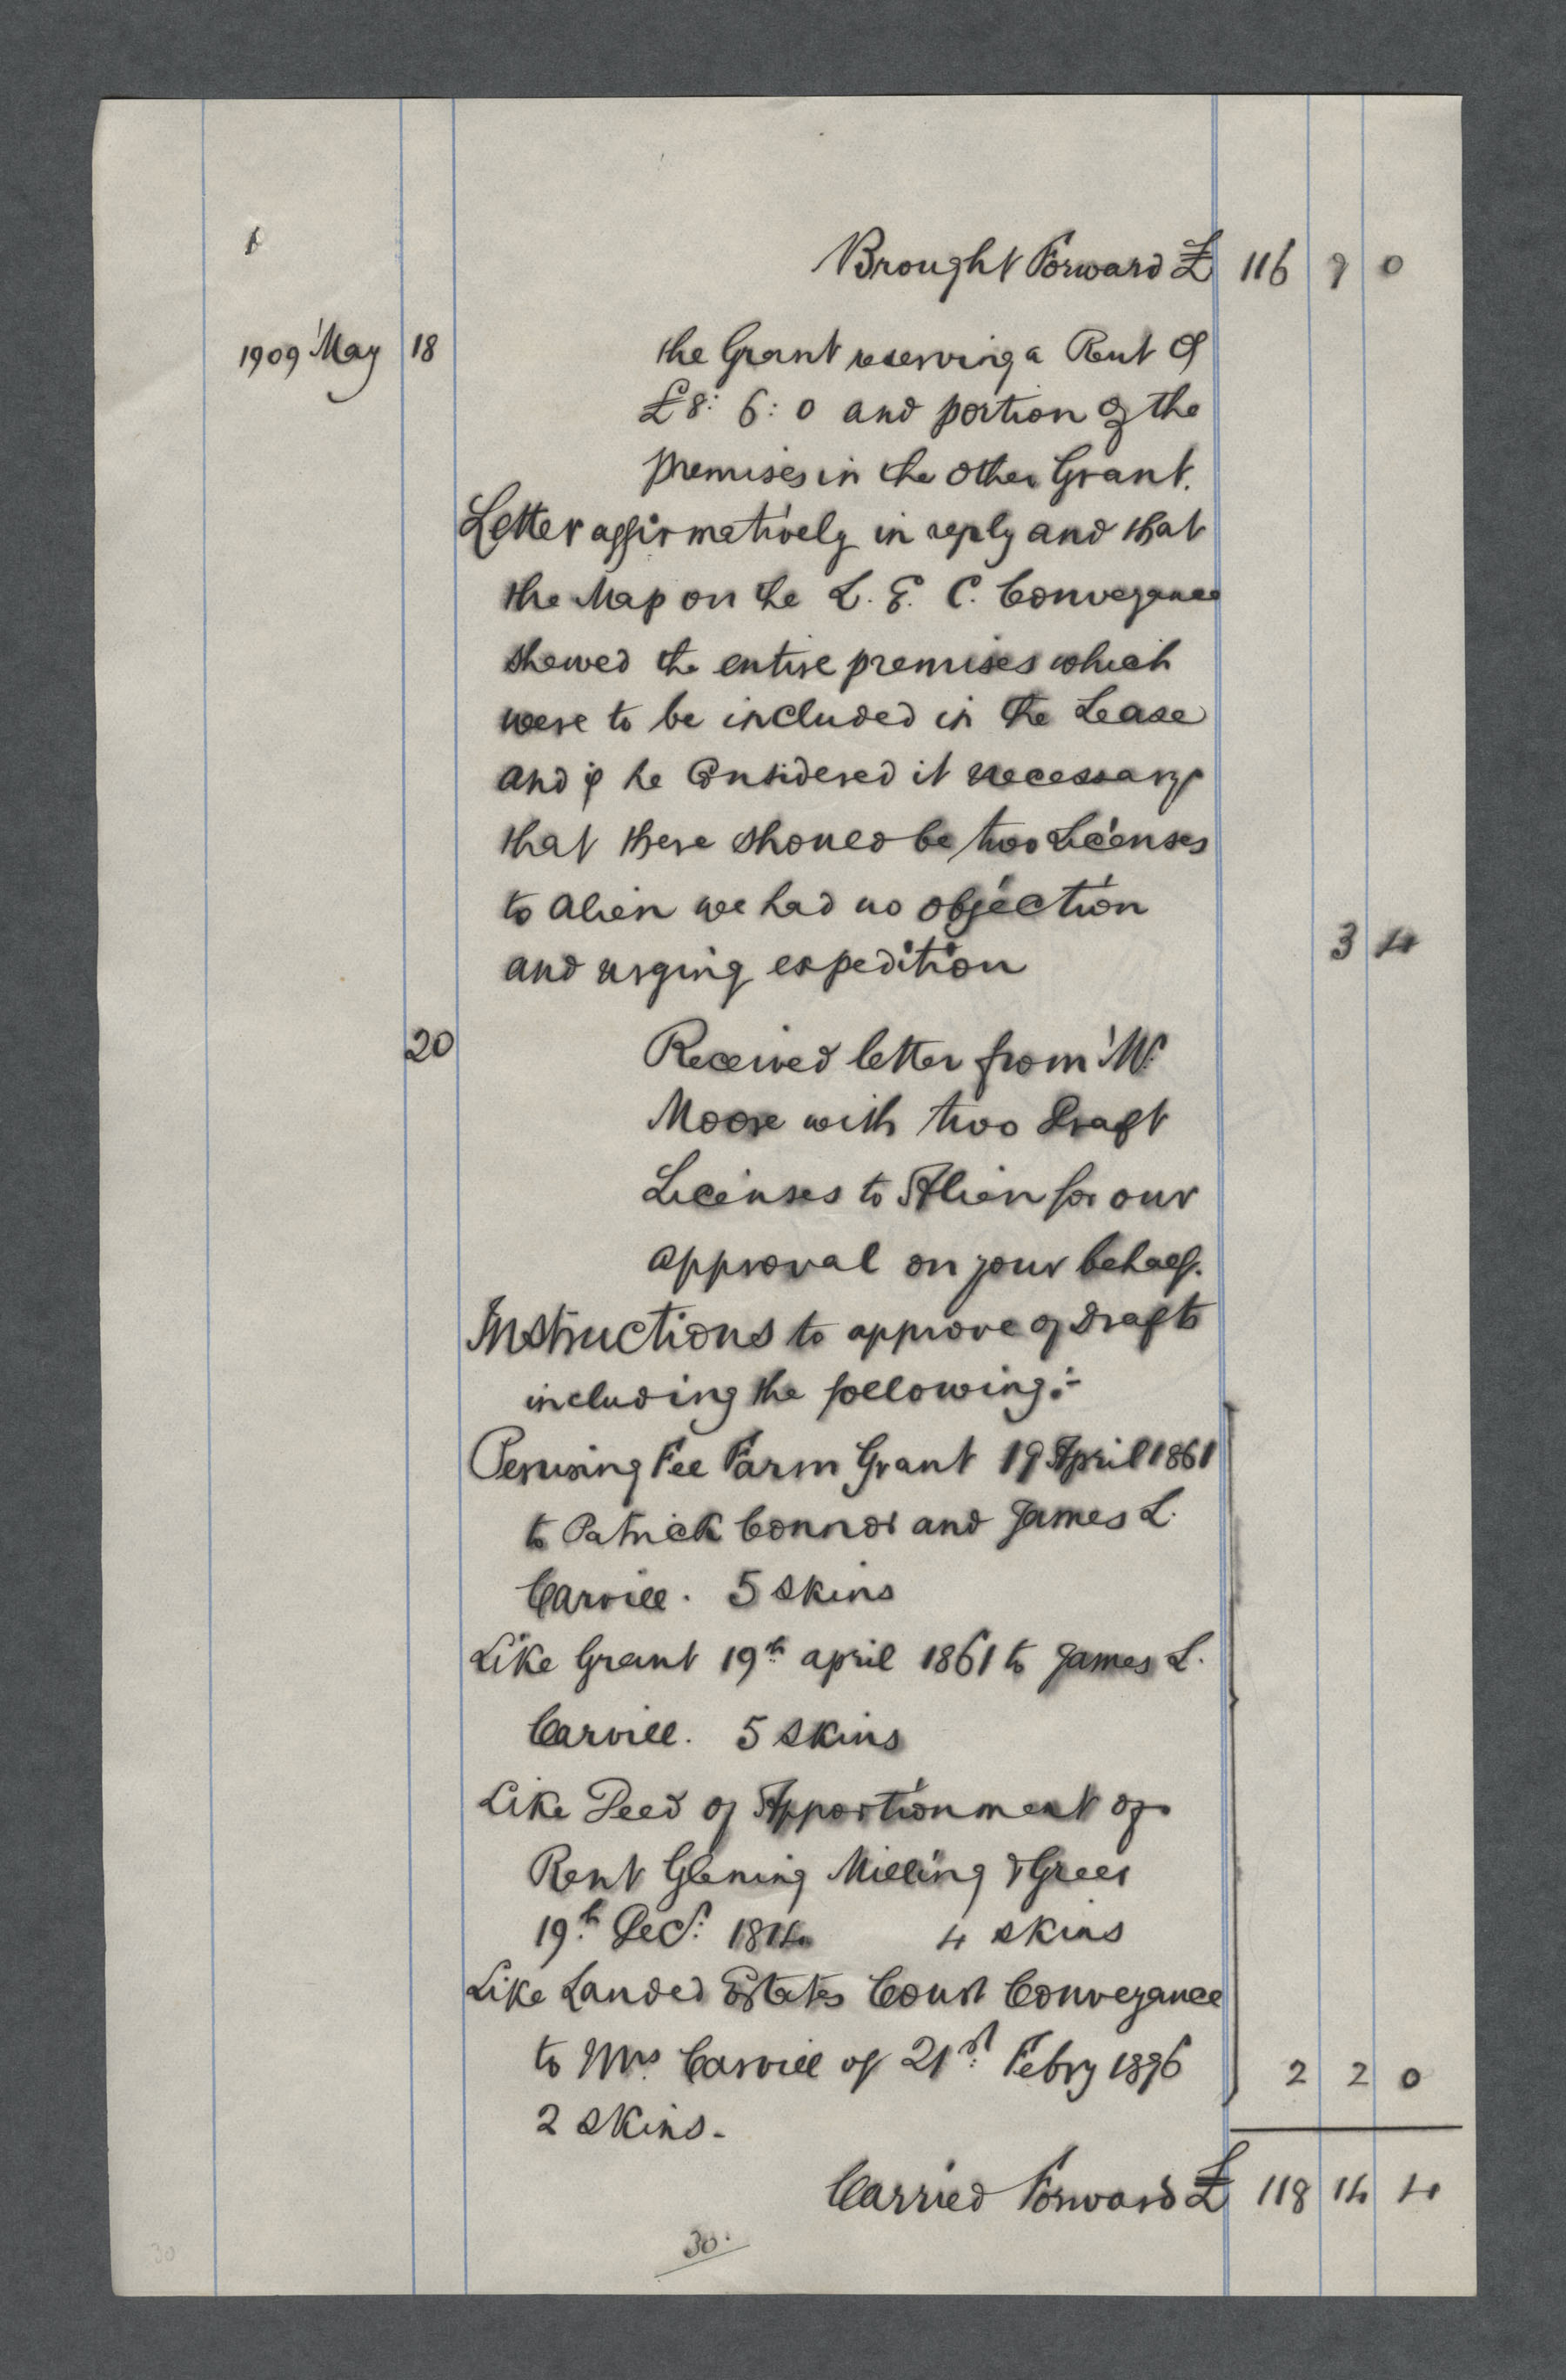 Brought Forward £ 116 9 0
1909 May 18 the Grant reserving a Rent of
£8: 6: 0 and portion of the
premises in the other Grant.
Letter affirmatively in reply and that
the Map on the L. E. C. Conveyance
shewed the entire premises which
were to be included in the Lease
and if he Considered it necessary
that there should be two Licenses
to alien we had no objection
and urging expedition 3 4
20 Received letter from Mr
Moore with two Draft
Licenses to Alien for our
approval on your behalf.
Instructions to approve of Drafts
including the following:-
Perusing Fee Farm Grant 19 April 1861
to Patrick Connor and James L.
Carvill. 5 Skins
Like Grant 19th april 1861 to James L.
Carvill. 5 Skins
Like Deed of Apportionment of
Rent Milling & Greer
19th Dec. 4 skins
Like Landed Estates Court Conveyance
to Mrs Carvill of 21st Febry 1896
2 Skins. 2 2 0
Carried Forward £ 118 14 4
30.
30